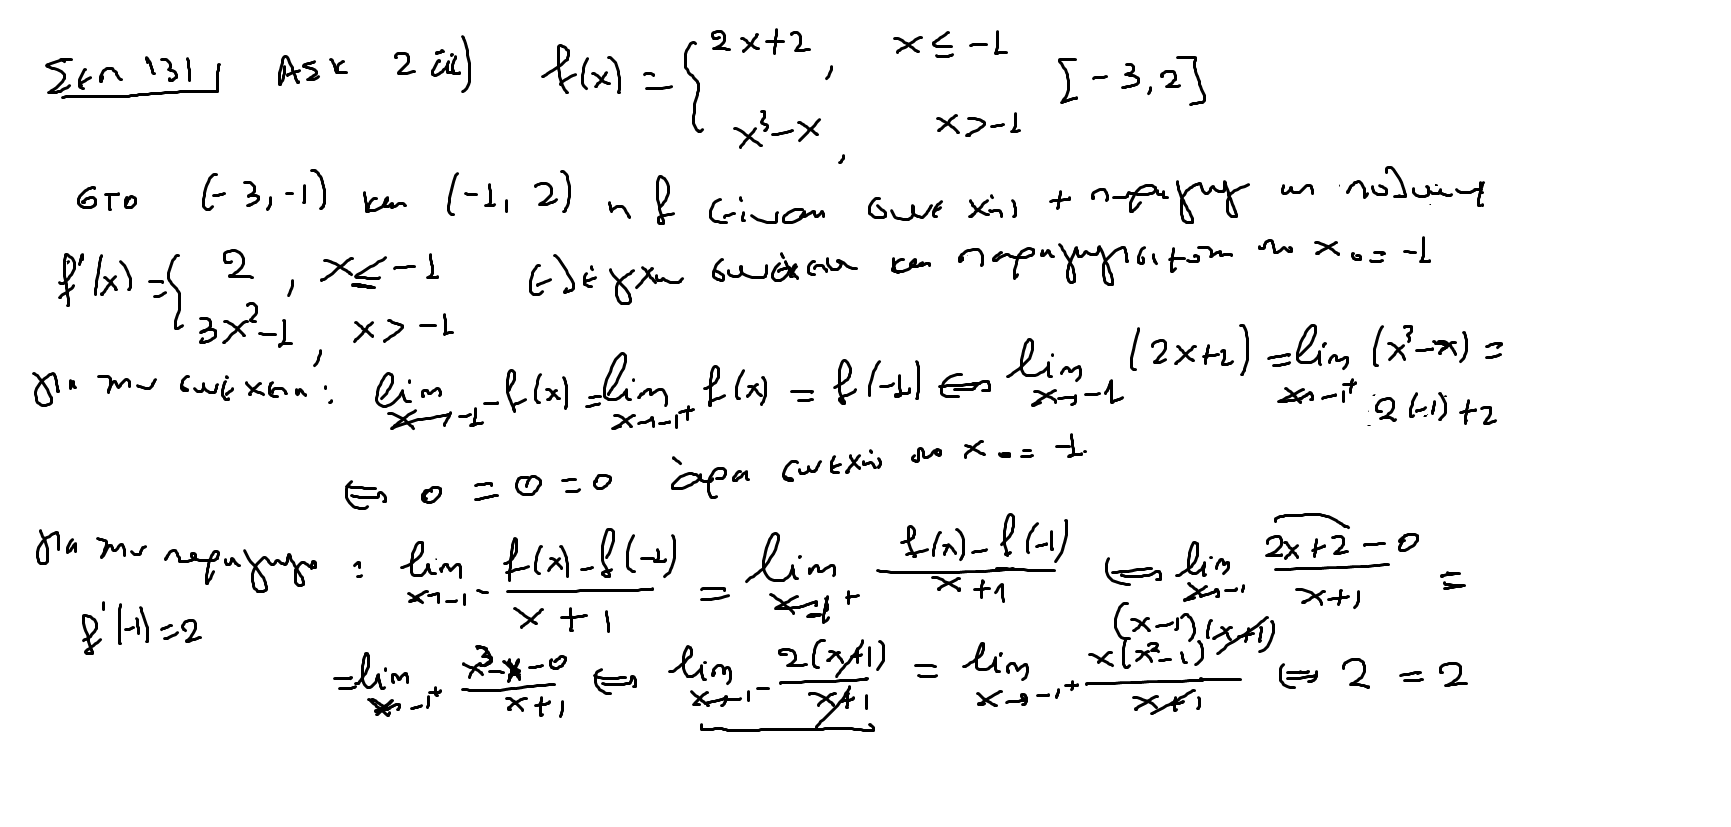 Σελ 131 Ασκ 2 iii) f(x) = { 2x+2, x ≤ -1 [-3,2]
x³-x, x>-1
στο (-3,-1) και (-1, 2) η f είναι συνεχής + παραγ/μη ως πολυων
f'(x) = { 2, x ≤ -1 ελέγχω συνέχεια και παραγωγισιμότητα στο x₀ = -1
3x²-1, x > -1
για την συνέχεια: lim x→-1⁻ f(x) = lim x→-1⁺ f(x) = f(-1) ⇔ lim x→-1 (2x+2) = lim x→-1⁺ (x³-x) =
2(-1)+2
⇔ 0 = 0 = 0 άρα συνεχής στο x₀ = -1.
για την παράγωγο : lim x→-1⁻ (f(x)-f(-1))/(x+1) = lim x→-1⁺ (f(x)-f(-1))/(x+1) ⇔ lim x→-1⁻ (2x+2-0)/(x+1) =
f'(-1)=2
= lim x→-1⁺ (x³-x-0)/(x+1) ⇔ lim x→-1⁻ 2(x+1)/(x+1) = lim x→-1⁺ x(x²-1)/(x+1) (x-1)(x+1) ⇔ 2 = 2